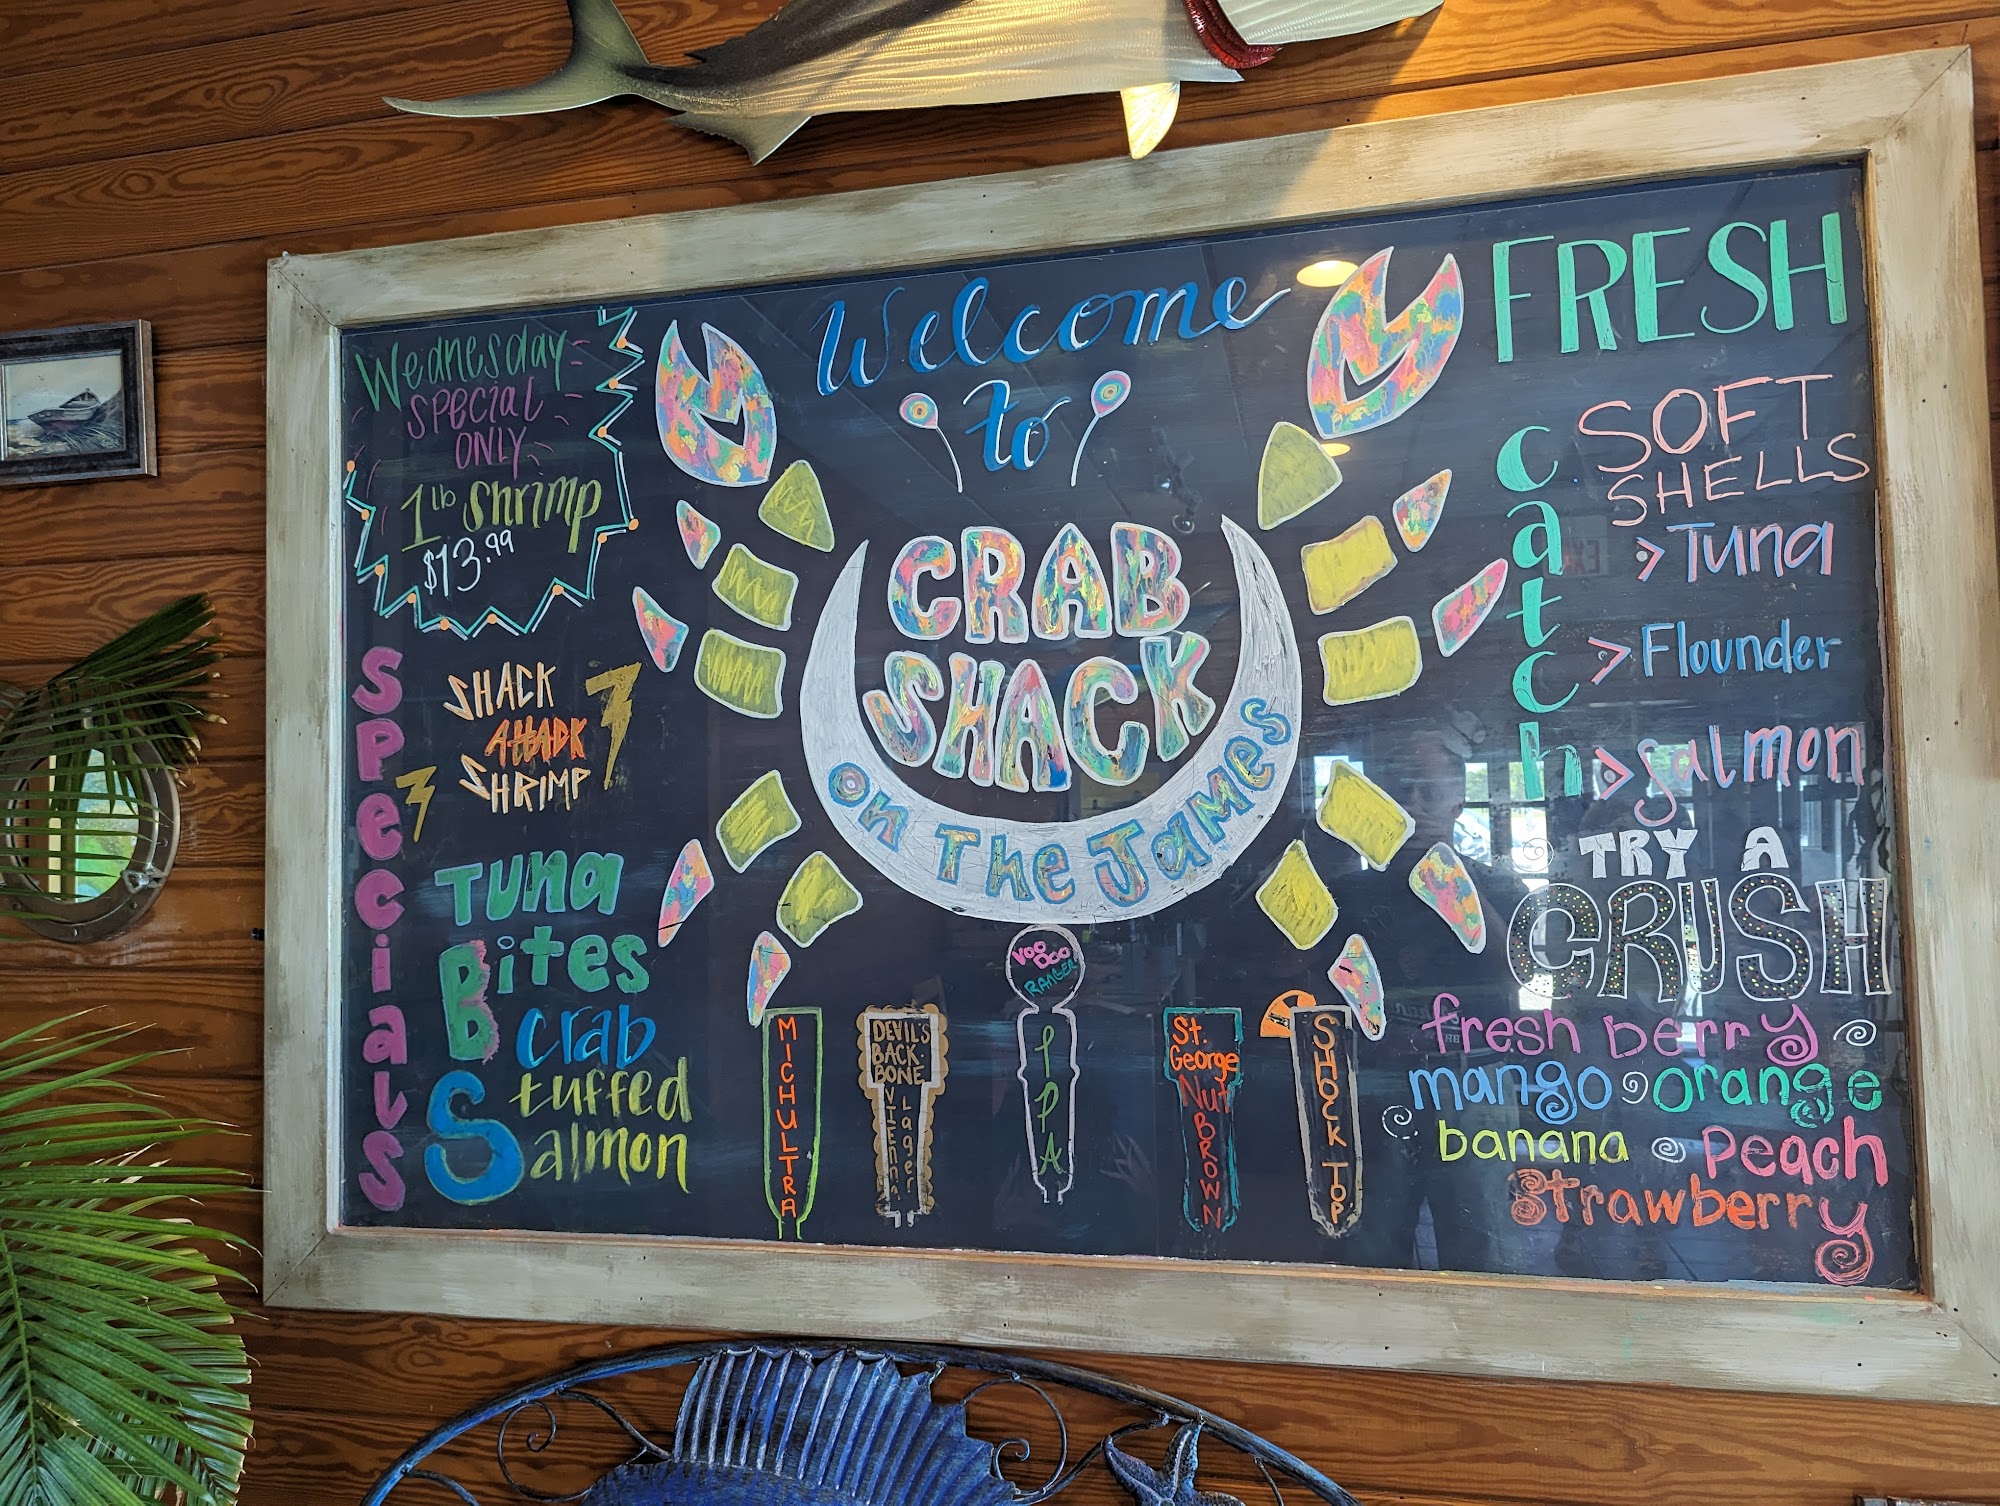 Welcome
to
CRAB
SHACK
on The James
Wednesday
special
ONLY
1 lb shrimp
$13.99
Specials
SHACK
Attack
SHRIMP
Tuna
Bites
Crab
Stuffed
Salmon
MICHULTRA
DEVIL'S
BACK-
BONE
VIENNA
Lager
VOO
DOO
RANGER
IPA
St.
George
Nut
BROWN
SHOCK TOP
FRESH
catch
SOFT
SHELLS
> Tuna
> Flounder
> salmon
TRY A
CRUSH
fresh berry
mango orange
banana peach
strawberry